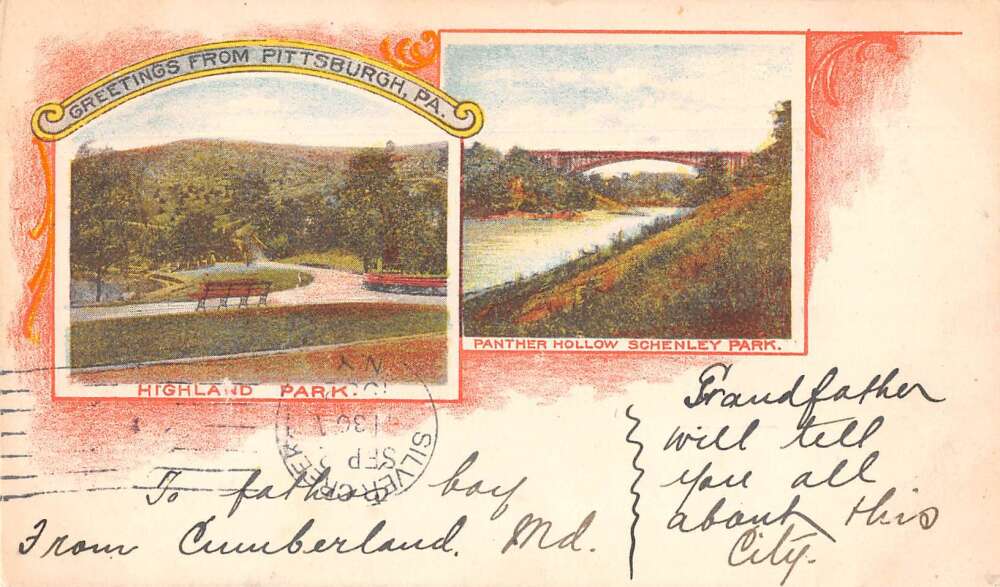 GREETINGS FROM PITTSBURGH, PA.
HIGHLAND PARK.
PANTHER HOLLOW SCHENLEY PARK.
SILVER CREEK
SEP
1 30
N.Y.
To father boy
From Cumberland. Md.
Grandfather
will tell
you all
about this
City.